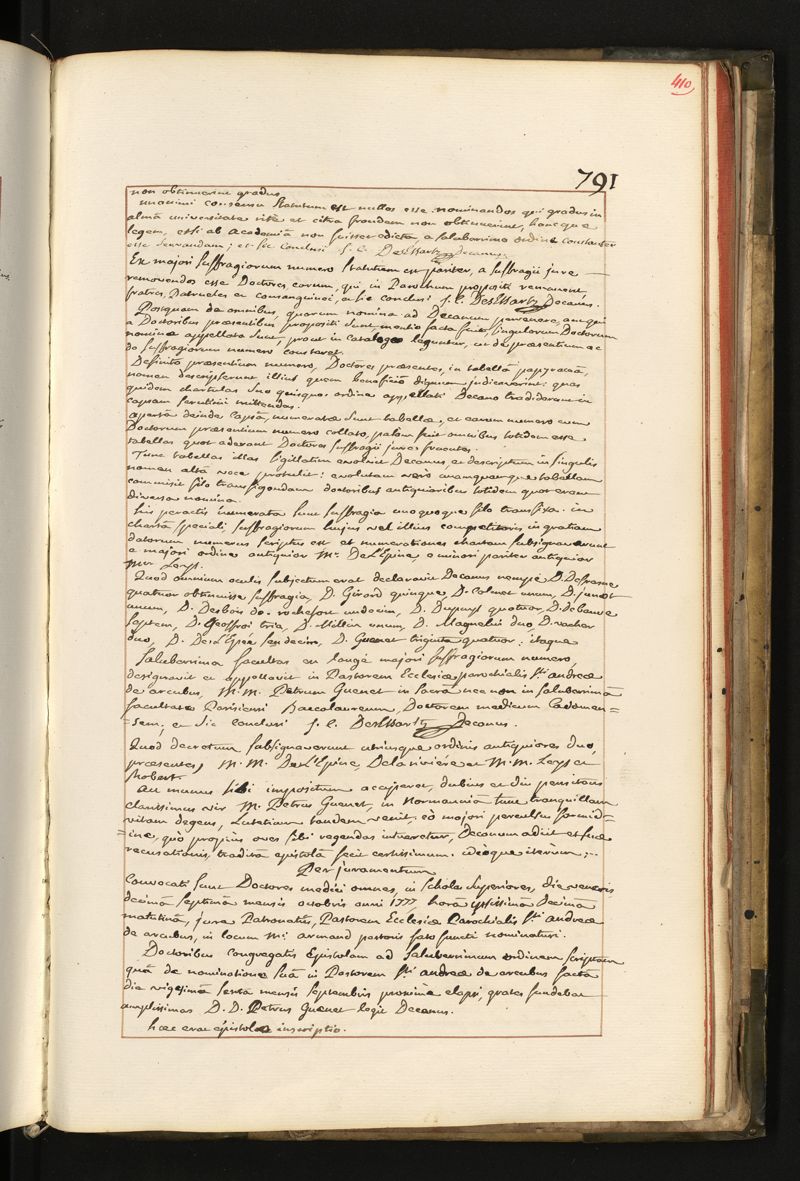 410
791
non obtinuerint gradus
unanimi consensu statutum est nullos esse nominandos qui gradus in
almâ universitate ritè et citra fraudem non obtinuerint, hancque
legem, etsi ab Academiâ non fuisset edicta a saluberrimo ordine constanter
esse servandam; et sic conclusi J. C. DesEssartz Decanus.
Ex majori suffragiorum numero statutum est pariter, a suffragii jure
removendos esse Doctores eorum, qui, in Parochum propositi remanent,
fratres, Patrueles et consanguineos, et sic conclusi J. C. DesEssartz Decanus.
Postquam de omnibus, quorum nomina ad Decanum pervenere, aut qui
a Doctoribus præsentibus propositi sunt, mentio facta fuit, singulorum Doctorum
nomina appellata sunt, prout in catalogo leguntur, ut de præsentium ac
de suffragiorum numero constaret.
Definito præsentium numero, Doctores præsentes, in tabellâ papyraceâ,
nomen descripserunt illius quem beneficio dignum judicaverint: quas
quidem chartulas suo quisque ordine appellati Decano tradiderunt in
capsam scrutinii mittendas.
apertâ deinde capsâ, numeratæ sunt tabellæ, et earum numero cum
Doctorum præsentium numero collato, palam fuit omnibus totidem esse
tabellas quot aderant Doctores suffragii jure fruentes.
Tunc tabellas illas sigillatim evolvit Decanus, et descriptum in singulis
nomen altâ voce protulit: evolutam verò unamquamque tabellam
commisit filo transfigendam doctoribus antiquioribus totidem quot erant
diversa nomina.
his peractis numerata sunt suffragia unoquoque filo transfixa. in
chartâ speciali suffragiorum hujus vel illius competitoris in gratiam
datorum numerus scriptus est et numerationis chartam subsignaverunt
a majori ordine antiquior Mr. De L'Epine, a minori pariter antiquior
Mr. Leys.
Quod omnium oculis subjectum erat declaravit Decanus nempe D.
quatuor obtinuisse suffragia, D. Girard quinque, D. Colmet unum, D. junot
unum, D. Desbois de rochefort undecim, D. Dupuyt quatuor, D. de
septem, D. Geoffroi tria, D. Millin unum, D. Magnelin duo D. vacher
duo, D. De L'Epée sexdecim, D. Guenet triginta quatuor: itaque
Saluberrima facultas ex longè majori suffragiorum numero,
designavit et appellavit in Pastorem Ecclesiæ parochialis Sti. andreæ
de arcubus, M. M. Petrum Guenet in sacrâ nec non in saluberrimâ
facultate Parisiensi Baccalaureum, Doctorem medicum Cadomen=
=sem; et sic conclusi J. C. DesEssartz Decanus.
Quod decretum subsignaverunt utriusque ordinis antiquiores duo,
præsentes, M. M. De L'Epine, De la riviére et M. M. Leys et
Robert.
An munus sibi impositum acciperet, dubius et diu pensitans
clarissimus vir M. Petrus Guenet, in Normanniâ tunc tranquillam
vitam degens, Lutetiam tandem venit; eò majori perculsus formid=
=ine, quò propiùs oves sibi regendas intueretur, Decanum adiit et suæ
recusationis, traditâ epistolâ fecit certissimum. ideoque iterùm;
Per juramentum
Convocati sunt Doctores medici omnes, in scholas superiores, die veneris
decimâ septimâ mensis octobris anni 1777, horâ ipsissimâ decimâ
matutinâ, jure Patronatûs, Pastorem Ecclesiæ Parochialis Sti. andreæ
de arcubus, in locum Mi. armand pastoris fato functi nominaturi.
Doctoribus congregatis Epistolam ad saluberrimum ordinem scriptam
quâ de nominatione suâ in Pastorem Sti. andreæ de arcubus factâ
die vigesimâ sextâ mensis septembris proximè elapsi, grates fundebat
amplissimas D. D. Petrus Guenet legit Decanus.
hæc erat epistolæ inscriptio.